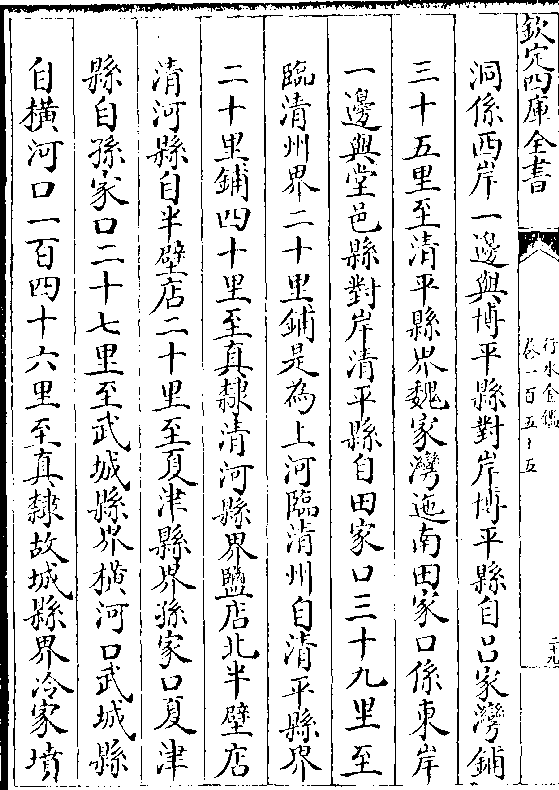 欽定四庫全書
行水金鑑
卷一百五十五
二十九
洞係西岸一邊與博平縣對岸博平縣自呂家灣鋪
三十五里至清平縣界魏家灣迤南田家口係東岸
一邊與堂邑縣對岸清平縣自田家口三十九里至
臨清州界二十里鋪是為上河臨清州自清平縣界
二十里鋪四十里至真隸清河縣界鹽店北半壁店
清河縣自半壁店二十里至夏津縣界孫家口夏津
縣自孫家口二十七里至武城縣界橫河口武城縣
自橫河口一百四十六里至真隸故城縣界冷家墳